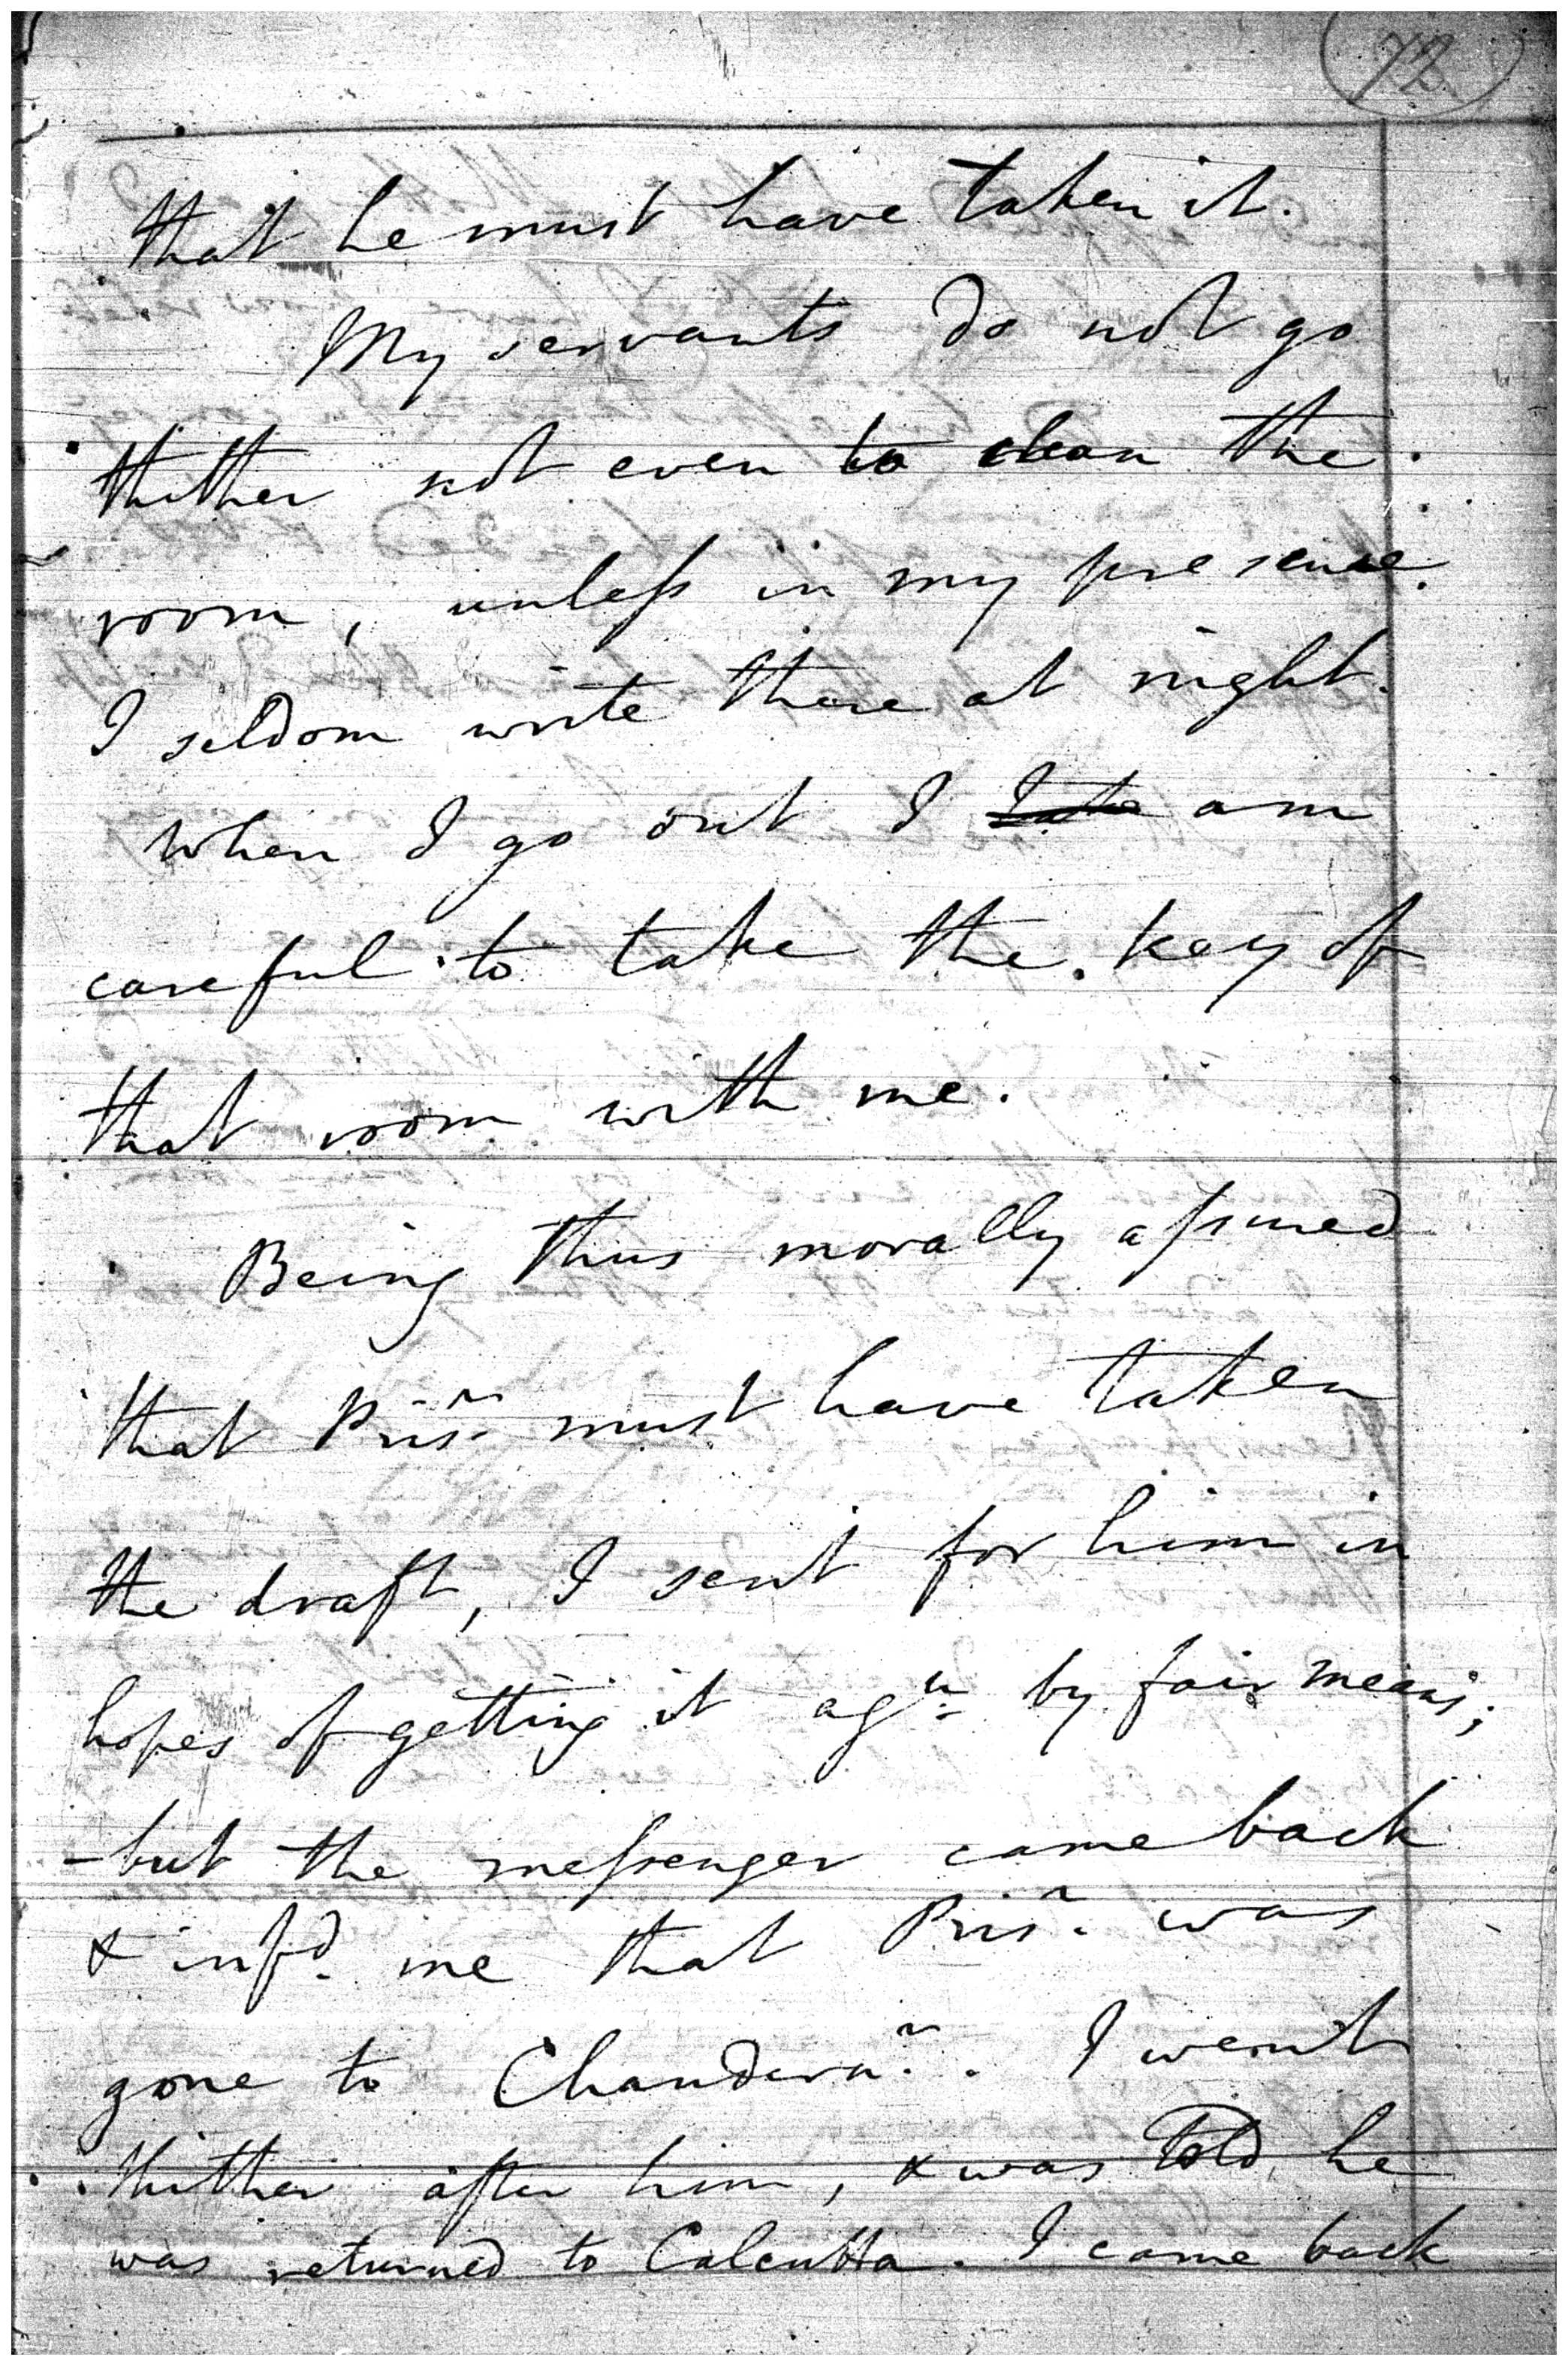 72
that he must have taken it.
My servants do not go
thither not even to clean the
room, unless in my presence.
I seldom write there at night.
When I go out I am
careful to take the key of
that room with me.
Being thus morally assured
that Prisr. must have taken
the draft, I sent for him in
hopes of getting it agn. by fair means;
-but the messenger came back
& infd. me that Prisr. was
gone to Chandernr. I went
thither after him, & was told he
was returned to Calcutta. I came back